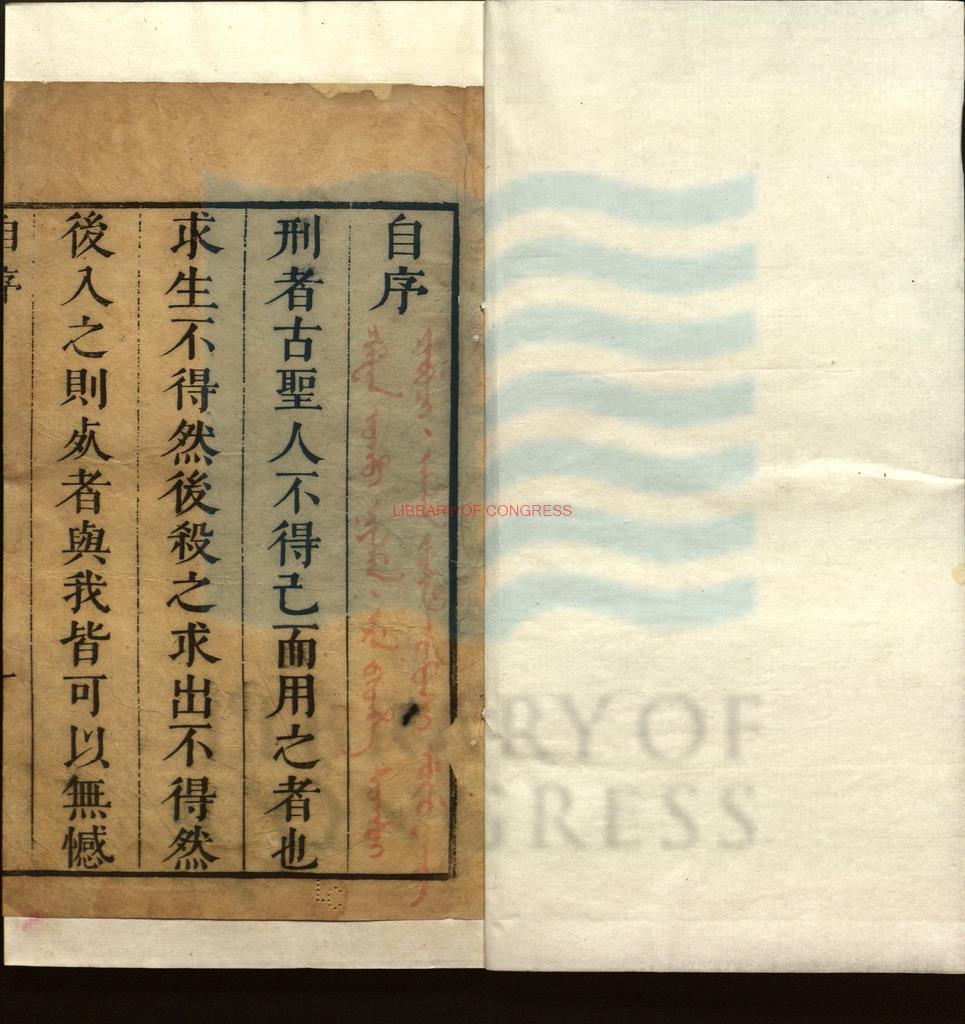 自序
刑者古聖人不得已而用之者也
求生不得然後殺之求出不得然
後入之則死者與我皆可以無憾
自序
一
LIBRARY OF CONGRESS
LIBRARY OF
CONGRESS